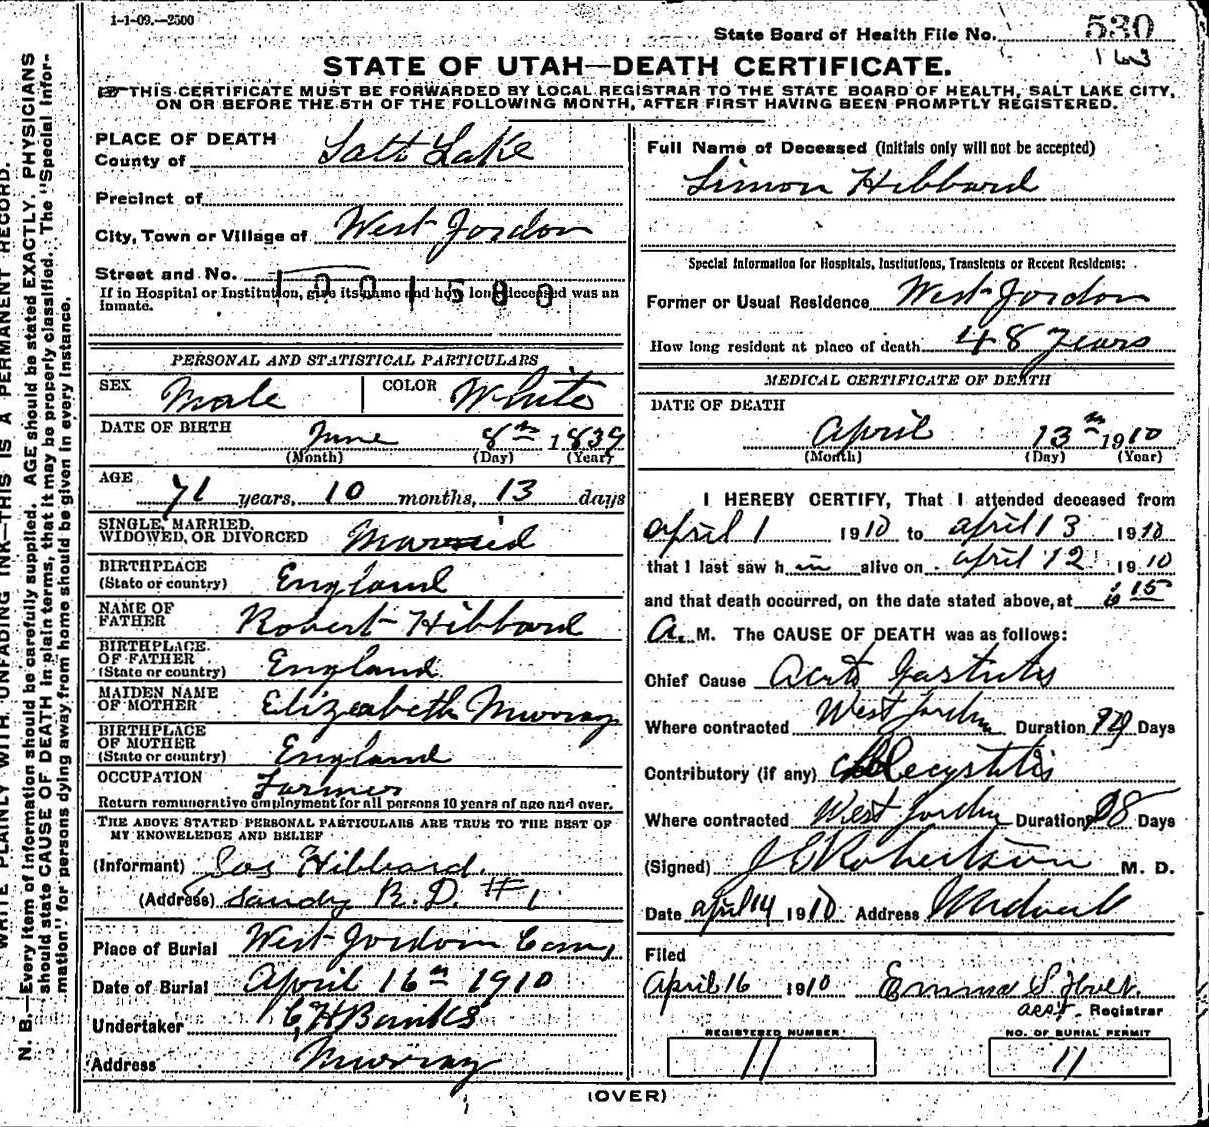 1-1-09.—2500
State Board of Health File No. 530
163
STATE OF UTAH—DEATH CERTIFICATE.
THIS CERTIFICATE MUST BE FORWARDED BY LOCAL REGISTRAR TO THE STATE BOARD OF HEALTH, SALT LAKE CITY, ON OR BEFORE THE 5TH OF THE FOLLOWING MONTH, AFTER FIRST HAVING BEEN PROMPTLY REGISTERED.
WRITE PLAINLY WITH UNFADING INK—THIS IS A PERMANENT RECORD.
N. B.—Every item of information should be carefully supplied. AGE should be stated EXACTLY. PHYSICIANS
should state CAUSE OF DEATH in plain terms, that it may be properly classified. The "Special Infor-
mation" for persons dying away from home should be given in every instance.
PLACE OF DEATH
County of Salt Lake
Precinct of
City, Town or Village of West Jordon
Street and No.
1001500
If in Hospital or Institution, give its name and how long deceased was an
Inmate.
PERSONAL AND STATISTICAL PARTICULARS
SEX Male COLOR White
DATE OF BIRTH June 8th 1839
(Month) (Day) (Year)
AGE 71 years, 10 months, 13 days
SINGLE, MARRIED,
WIDOWED, OR DIVORCED Married
BIRTHPLACE
(State or country) England
NAME OF
FATHER Robert Hibbard
BIRTHPLACE
OF FATHER
(State or country) England
MAIDEN NAME
OF MOTHER Elizabeth Murray
BIRTHPLACE
OF MOTHER
(State or country) England
OCCUPATION Farmer
Return remunerative employment for all persons 10 years of age and over.
THE ABOVE STATED PERSONAL PARTICULARS ARE TRUE TO THE BEST OF
MY KNOWLEDGE AND BELIEF
(Informant) Jos Hibbard.
(Address) Sandy R.D. #1
Place of Burial West Jordon Cem,
Date of Burial April 16th 1910
Undertaker C H Banks
Address Murray
Full Name of Deceased (Initials only will not be accepted)
Simon Hibbard
Special Information for Hospitals, Institutions, Transients or Recent Residents:
Former or Usual Residence West Jordon
How long resident at place of death 48 years
MEDICAL CERTIFICATE OF DEATH
DATE OF DEATH
April 13th 1910
(Month) (Day) (Year)
I HEREBY CERTIFY, That I attended deceased from
april 1 1910 to april 13 1910
that I last saw h im alive on april 12 1910
and that death occurred, on the date stated above, at 15
A. M. The CAUSE OF DEATH was as follows:
Chief Cause Acute Gastritis
Where contracted West Jordan Duration Days
Contributory (if any)
Where contracted West Jordan Duration Days
(Signed) J E Robertson M. D.
Date april 14 1910 Address Midvale
Filed
April 16 1910 Emma S.
asst. Registrar
REGISTERED NUMBER
11
NO. OF BURIAL PERMIT
11
(OVER)